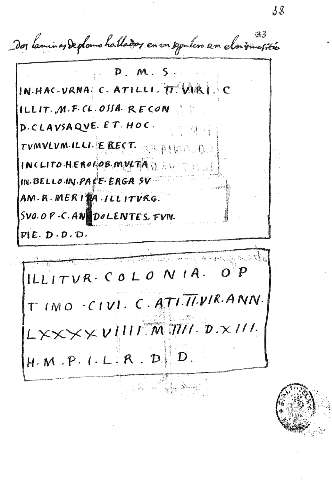 38
33
Dos laminas de plomo halladas en un sepulcro en el mismo sitio
D. M. S.
IN. HAC. VRNA. C. ATILLI. II. VIRI. C
ILLIT. M. F. CL. OSSA. RECON
D. CLAVSAQVE. ET. HOC.
TVMVLVM. ILLI. ERECT.
INCLITO. HEROI. OB. MVLTA
IN. BELLO. IN. PACE. ERGA. SV
AM. R. MERITA. ILLITVRG.
SVO. OP. C. AN DOLENTES. FVN.
DIE. D. D. D.
ILLITVR. COLONIA. OP
TIMO. CIVI. C. ATI. II. VIR. ANN.
LXXXXVIIII. M IIII. D. XIII.
H. M. P. I. L. R. D. D.